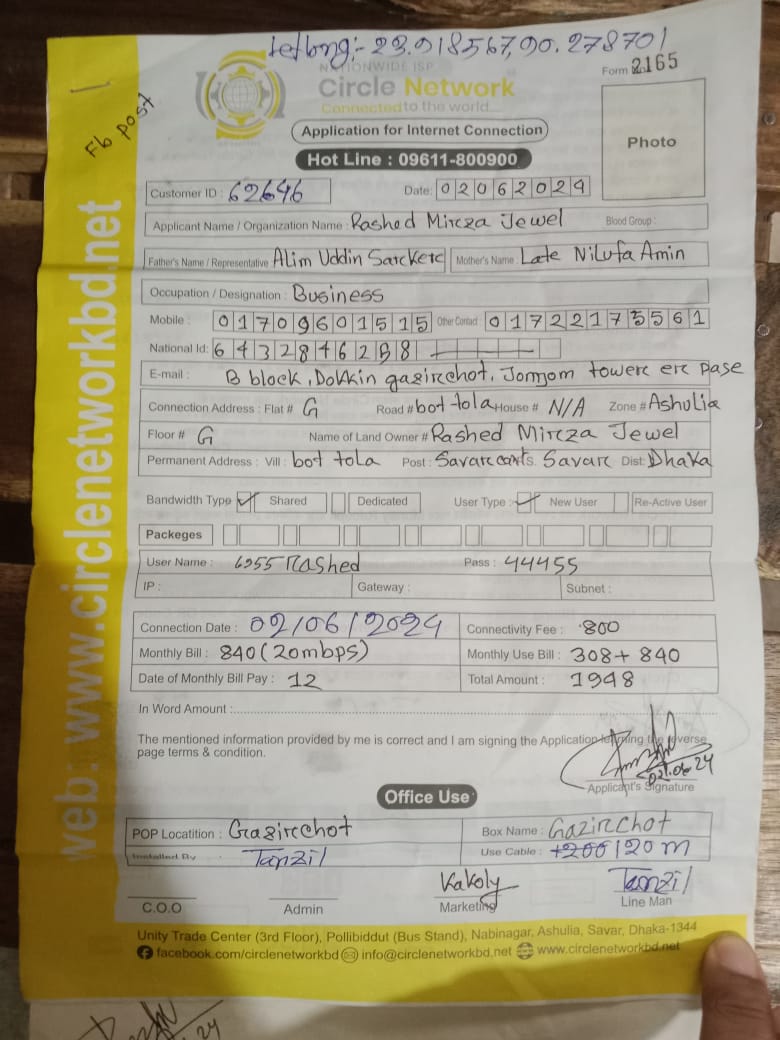 Letlong:- 23.918567,90.278701
NATIONWIDE ISP
Circle Network
Connected to the world
Form No 2165
Fb post
Application for Internet Connection
Hot Line : 09611-800900
Photo
Customer ID : 62646 Date: 02062024
Applicant Name / Organization Name : Rashed Mircza Jewel Blood Group :
Father's Name / Representative Alim Uddin Sarckerc Mother's Name : Late Nilufa Amin
Occupation / Designation : Business
Mobile : 01709601515 Other Contact 01722173561
National Id: 6432846288
E-mail : B block, Dokkin gazirchot, Jomjom towerc erc pase
Connection Address : Flat # G Road # bot tola House # N/A Zone # Ashulia
Floor # G Name of Land Owner # Rashed Mircza Jewel
Permanent Address : Vill : bot tola Post : Savarc cants. Savarc Dist: Dhaka
Bandwidth Type Shared Dedicated User Type : New User Re-Active User
Packeges
User Name : 6255 Rashed Pass : 44455
IP : Gateway : Subnet :
Connection Date : 02/06/2024 Connectivity Fee : 800
Monthly Bill : 840 (20mbps) Monthly Use Bill : 308+ 840
Date of Monthly Bill Pay : 12 Total Amount : 1948
In Word Amount :
The mentioned information provided by me is correct and I am signing the Application the reverse
page terms & condition.
02.06.24
Applicant's Signature
Office Use
POP Locatition : Gazircchot Box Name : Gazircchot
Installed By Tanzil Use Cable : 120 m
Kakoly Tanzil
C.O.O Admin Marketing Line Man
Unity Trade Center (3rd Floor), Pollibiddut (Bus Stand), Nabinagar, Ashulia, Savar, Dhaka-1344
facebook.com/circlenetworkbd info@circlenetworkbd.net www.circlenetworkbd.net
web: www.circlenetworkbd.net